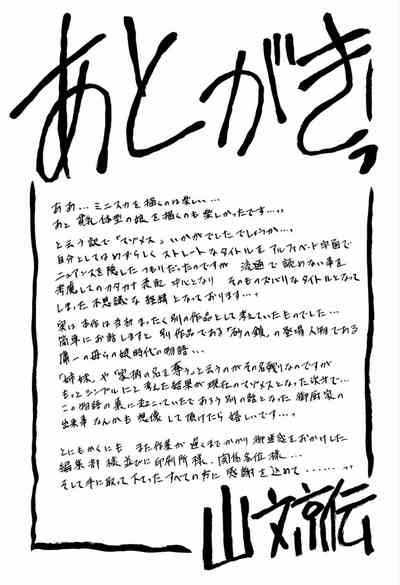 あとがきっ
ああ…ミニスカを描くのは楽しい…
あと貧乳体型の娘を描くのも楽しかったです…。
と云う訳で「マゾメス」いかがでしたでしょうか…。
自分としてはめずらしくストレートなタイトルをアルファベット字面で
ニュアンスを隠したつもりだったのですが 流通で読めない事を
考慮してのカタカナ表記中心となり そのものズバリなタイトルとなって
しまった不思議な経緯となっております…。
実は本作は当初まったく別の作品として考えていたものでした…
簡単にお話しますと 別作品である「砂の鎖」の登場人物である
陽一の母らの娘時代の物語…
「姉妹」や「家柄の名を奪う」と云うのがその名残りなのですが
もっとシンプルにと考えた結果が現在のマゾメスとなった次第で…
この物語の裏に起こっていたであろう別の話となった御厨家の
出来事なんかも想像して頂けたら嬉しいです…。
とにもかくにも また作業が遅くまでかかり御迷惑をおかけした
編集部様並びに印刷所様、関係各位様…
そして手に取って下さったすべての方に感謝を込めて……。
山文京伝